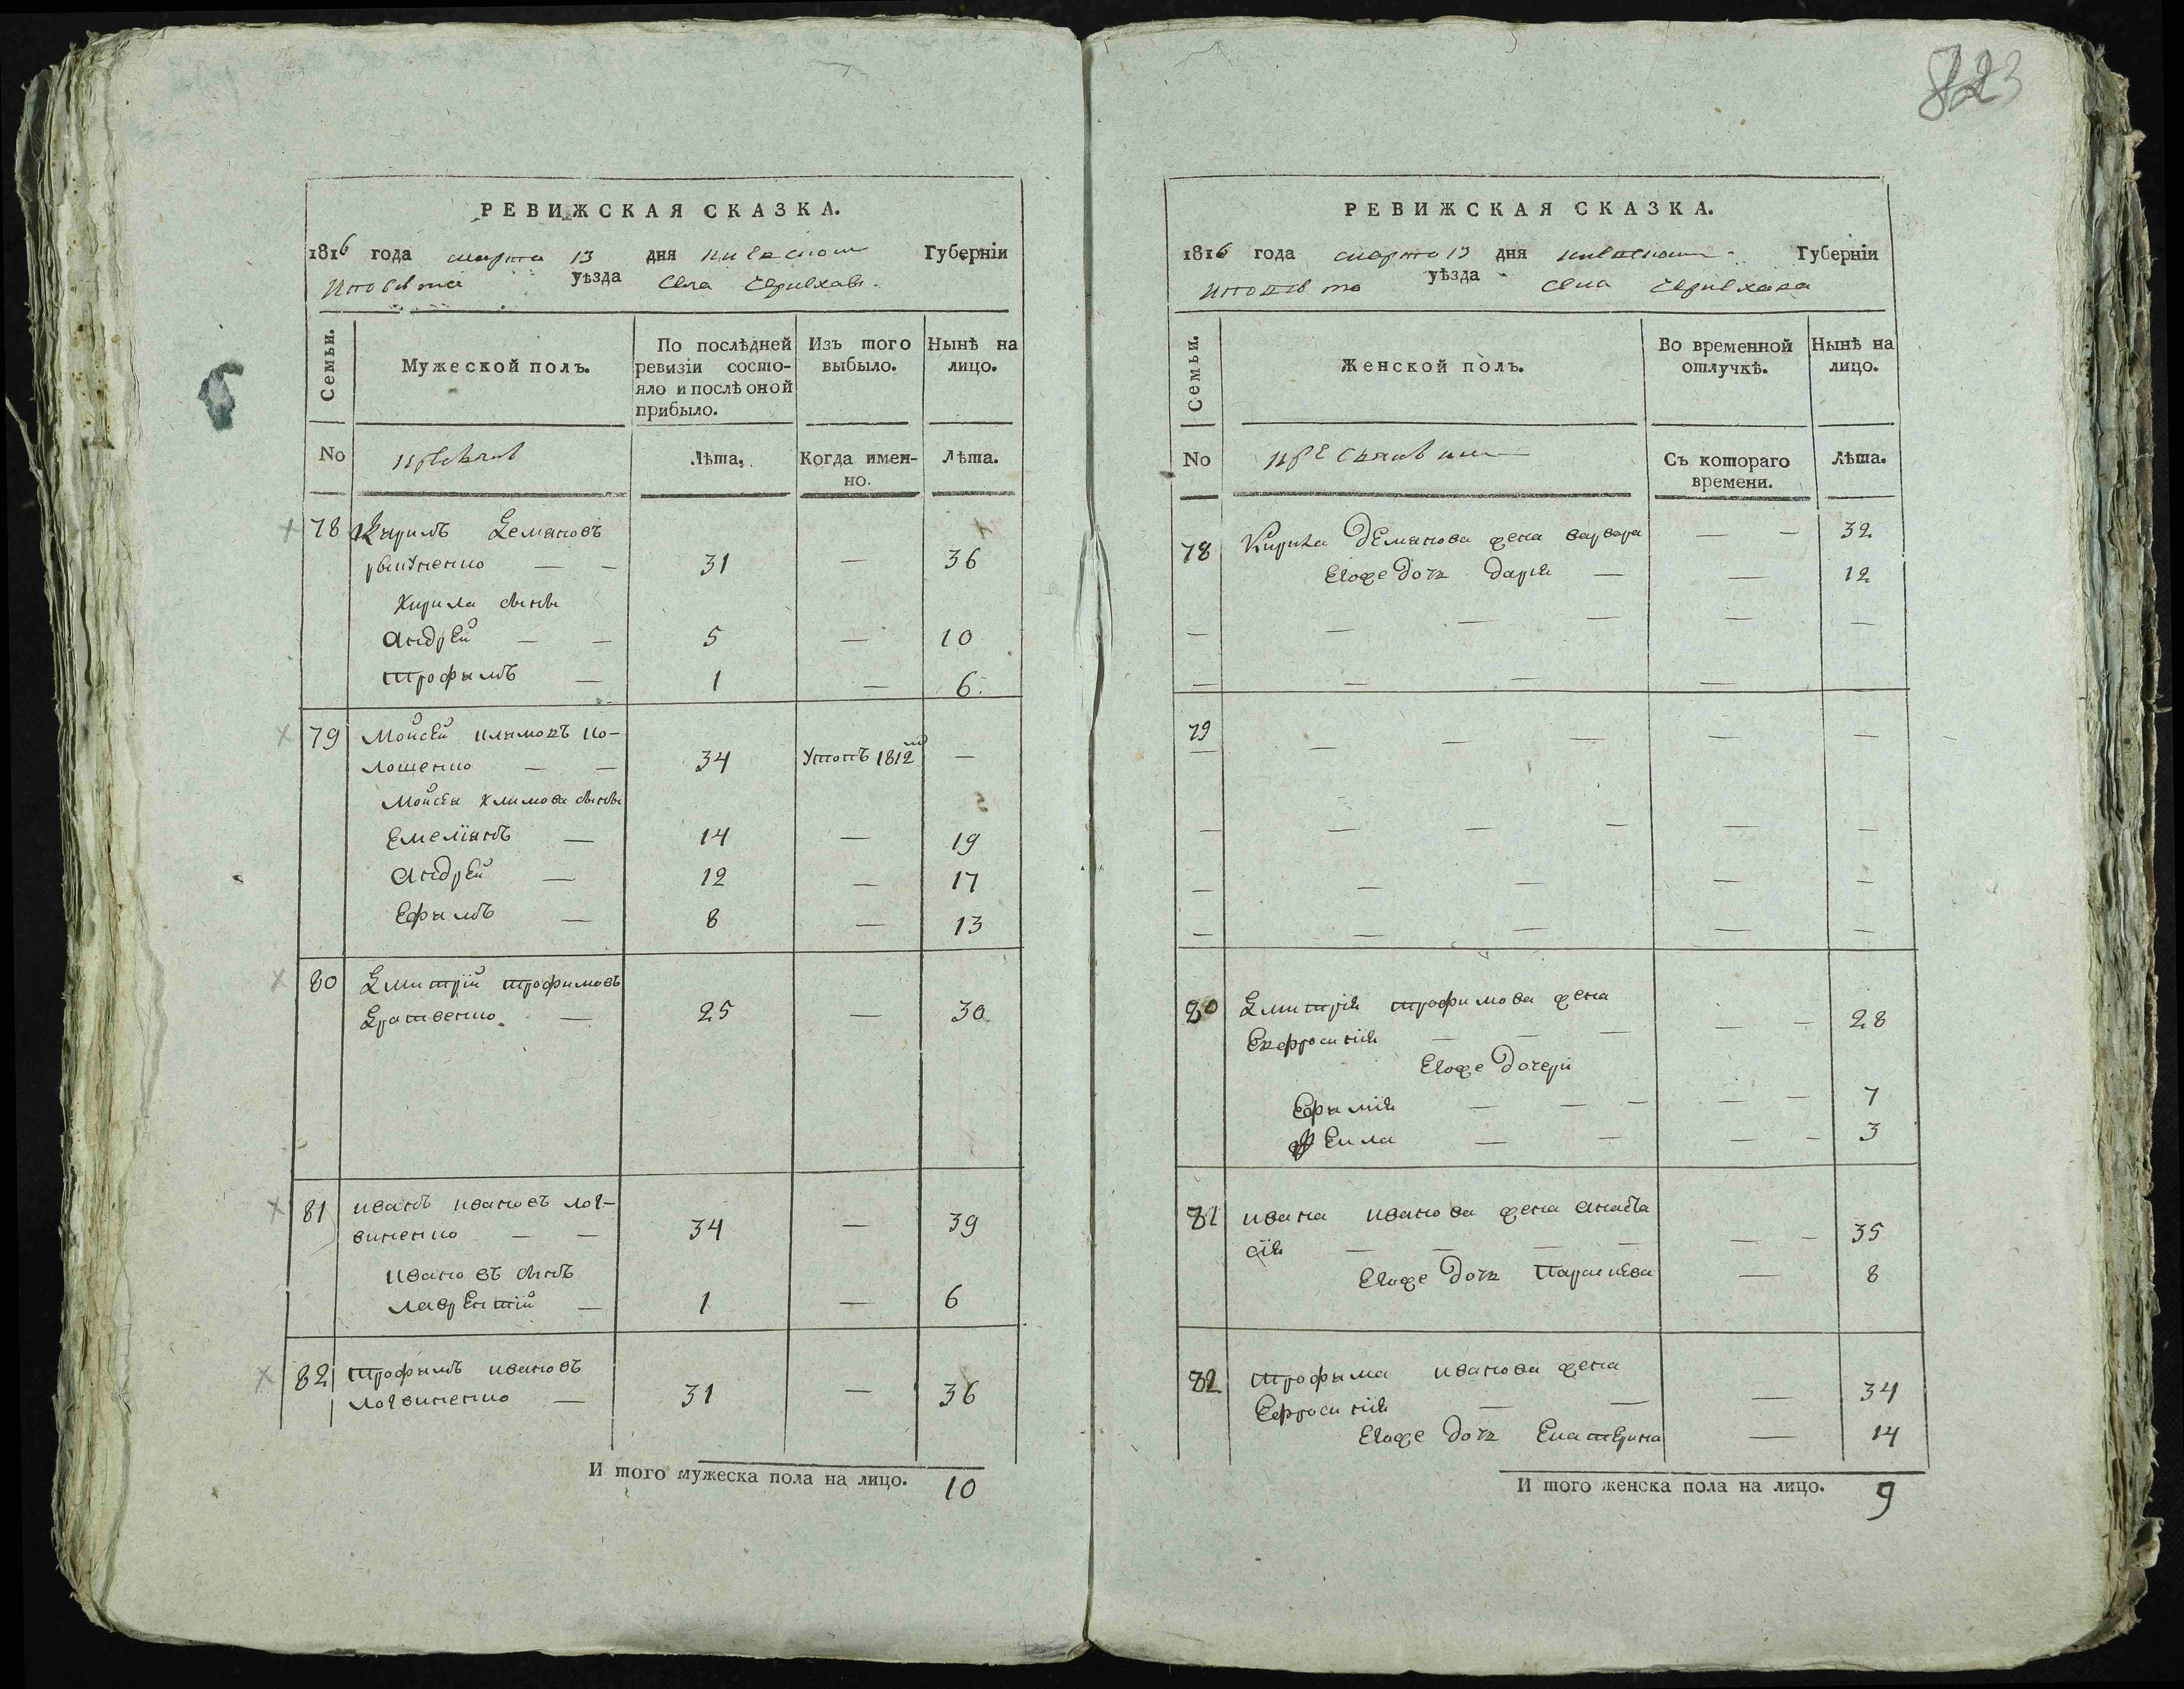 РЕВИЖСКАЯ СКАЗКА.
1816 года марта 13 дня Киевской Губерніи
уѣзда села
Семьи.
Мужеской полъ.
По послѣдней ревизіи состояло и послѣ оной прибыло.
Изъ того выбыло.
Нынѣ на лицо.
No
Лѣта.
Когда именно.
Лѣта.
78 Кирилъ Демяновъ
31 — 36
Кирила сыны
Андрей — — 5 — 10
Трофымъ — 1 — 6
79 Мойсей Климовъ Ко-
лошенко — — 34 Утопъ 1812 —
Мойсея Климова сыны
Емеліянъ — 14 — 19
Андрей — 12 — 17
Ефымъ — 8 — 13
80 Дмитрій Трофимовъ
— 25 — 30
81 Иванъ Ивановъ Лог-
виненко — — 34 — 39
Ивановъ сынъ
Лаврентій — 1 — 6
82 Трофымъ Ивановъ
Логвиненко — 31 — 36
И того мужеска пола на лицо. 10
823
РЕВИЖСКАЯ СКАЗКА.
1816 года марта 13 дня Киевской Губерніи
уѣзда села
Семьи.
Женской полъ.
Во временной отлучкѣ.
Нынѣ на лицо.
No
Съ котораго времени.
Лѣта.
78 Кирила Демянова жена Варвара — — 32
Егоже дочь Дарія — — 12
79
80 Дмитрія Трофимова жена
Евфросинія — — — — 28
Егоже дочери
Ефымія — — — — — 7
Фекла — — — — 3
81 Ивана Иванова жена Анаста
сія — — — — — — 35
Егоже дочь Параскева — 8
82 Трофыма Иванова жена
Ефросинія — — — 34
Егоже дочь Екатерина — 14
И того женска пола на лицо. 9